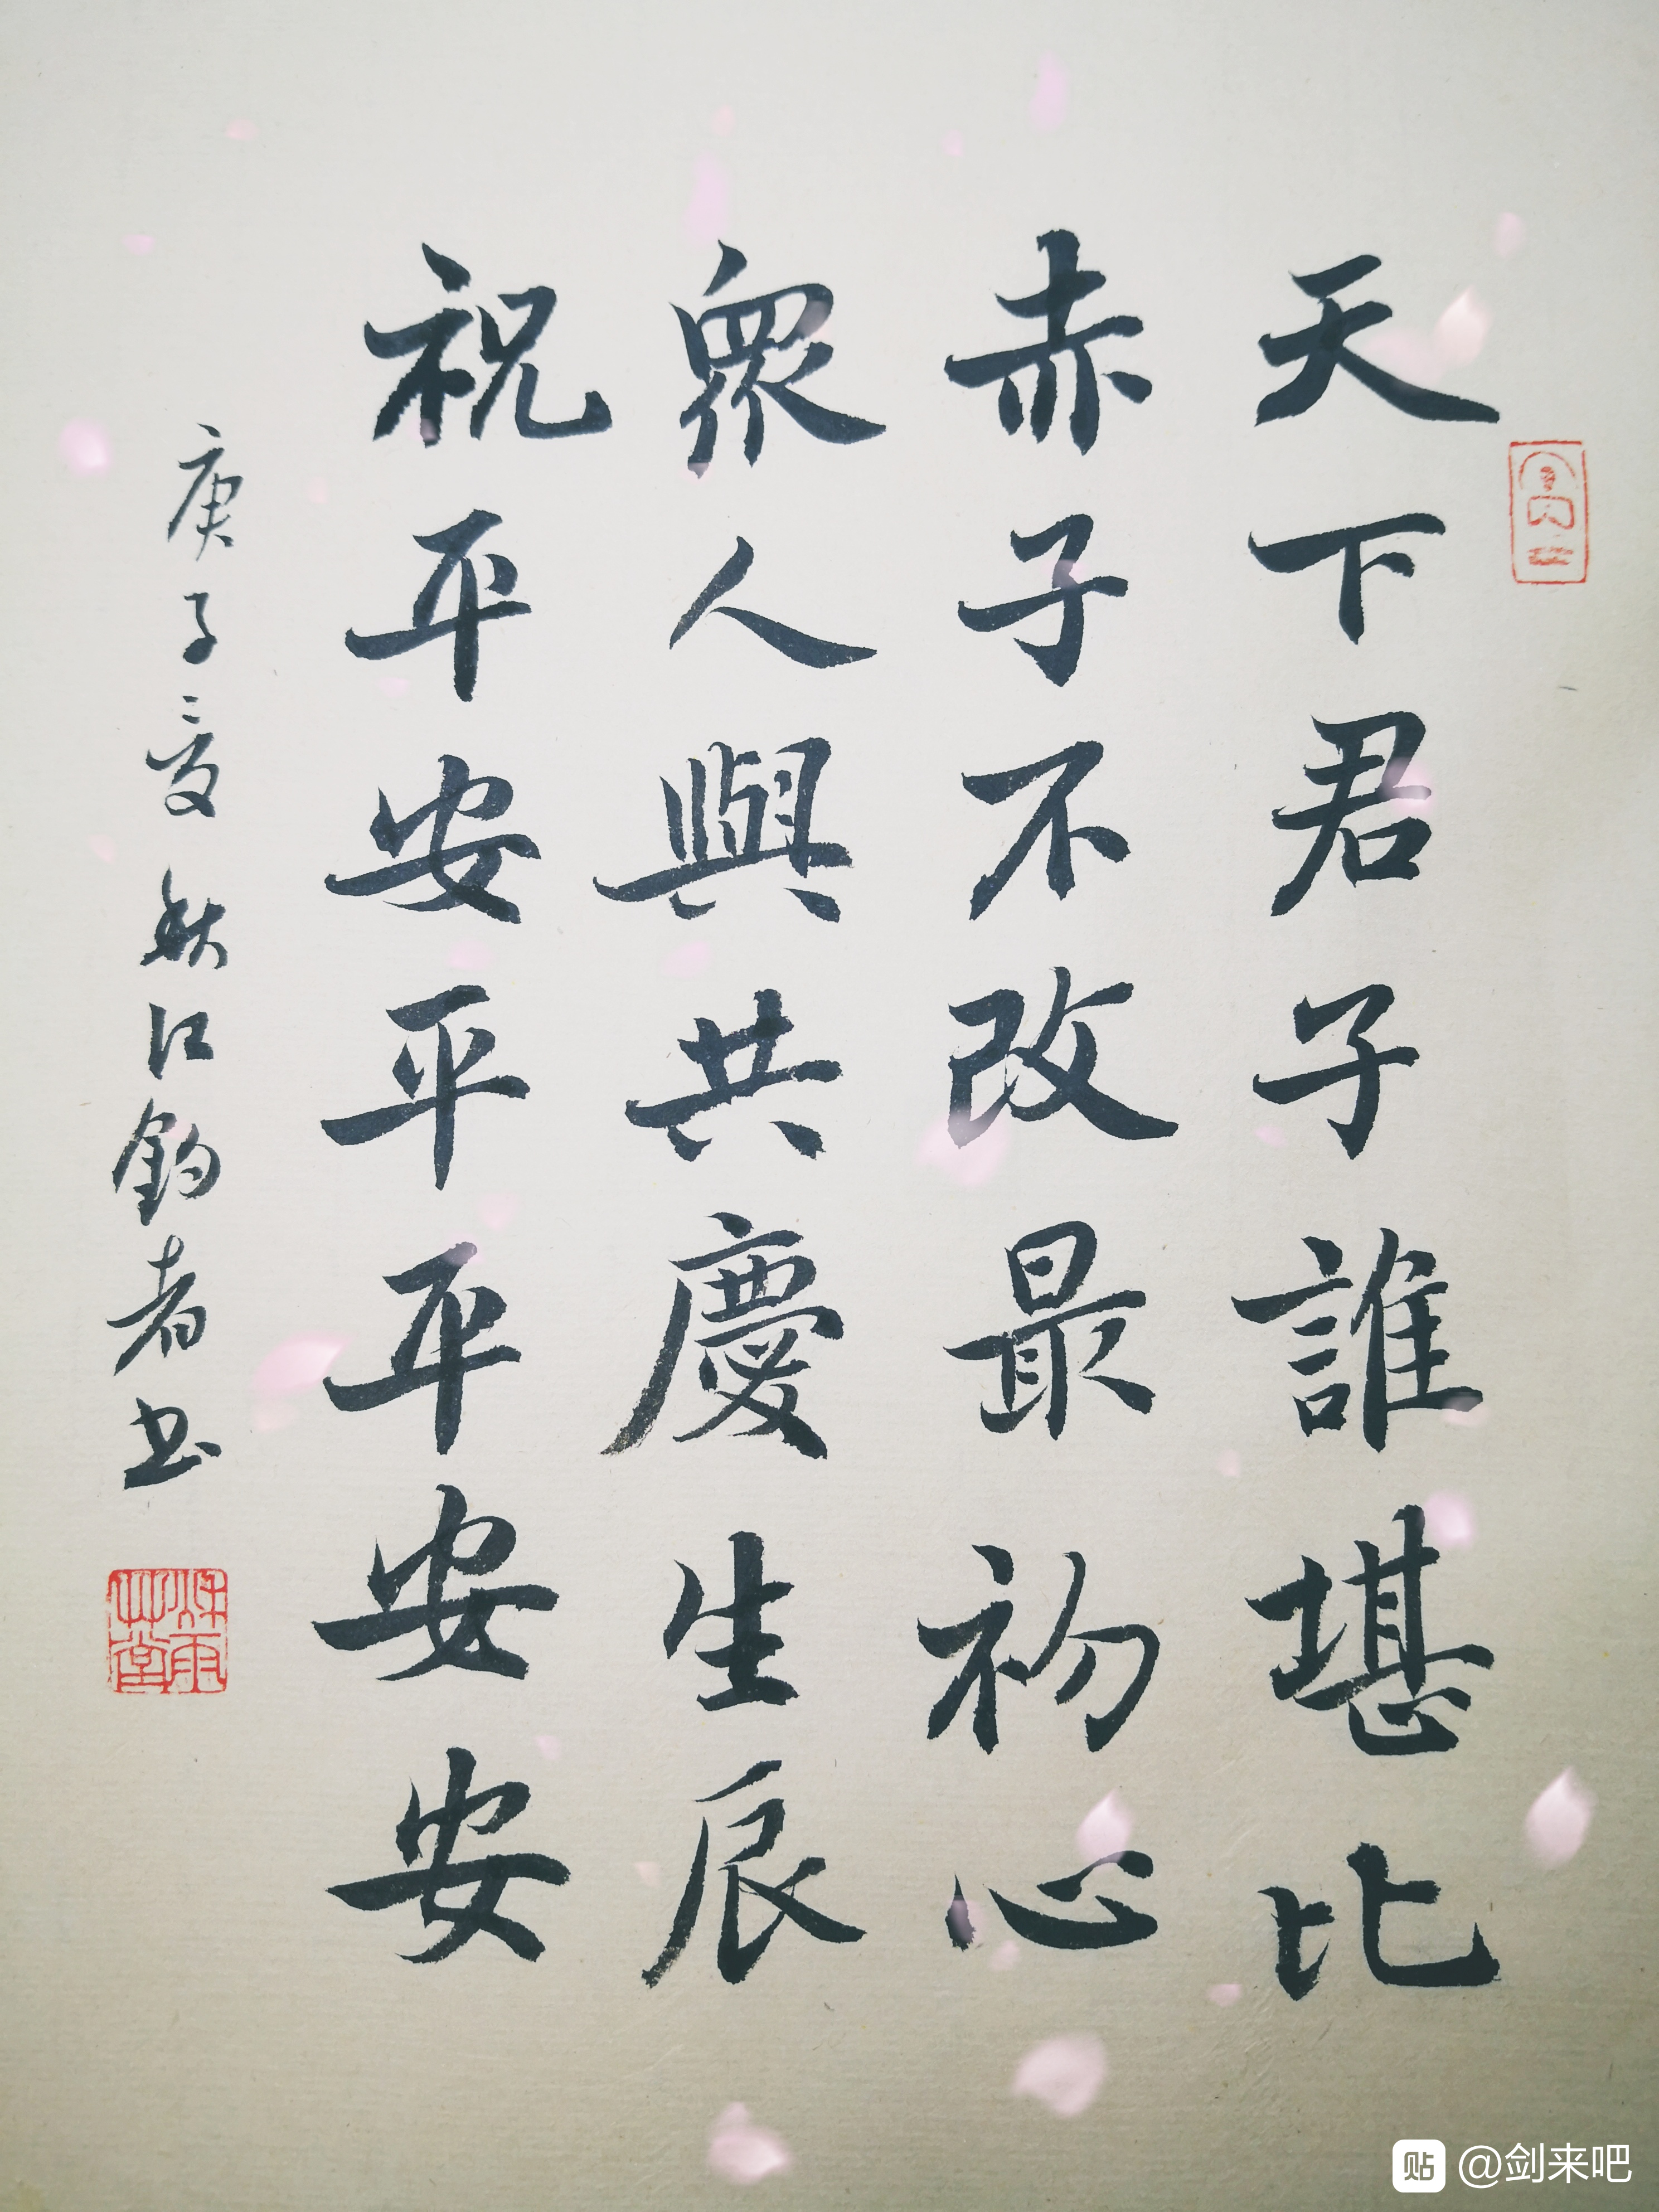 天下君子誰堪比
赤子不改最初心
衆人與共慶生辰
祝平安平平安安
庚子夏秋江釣者书
贴 @剑来吧